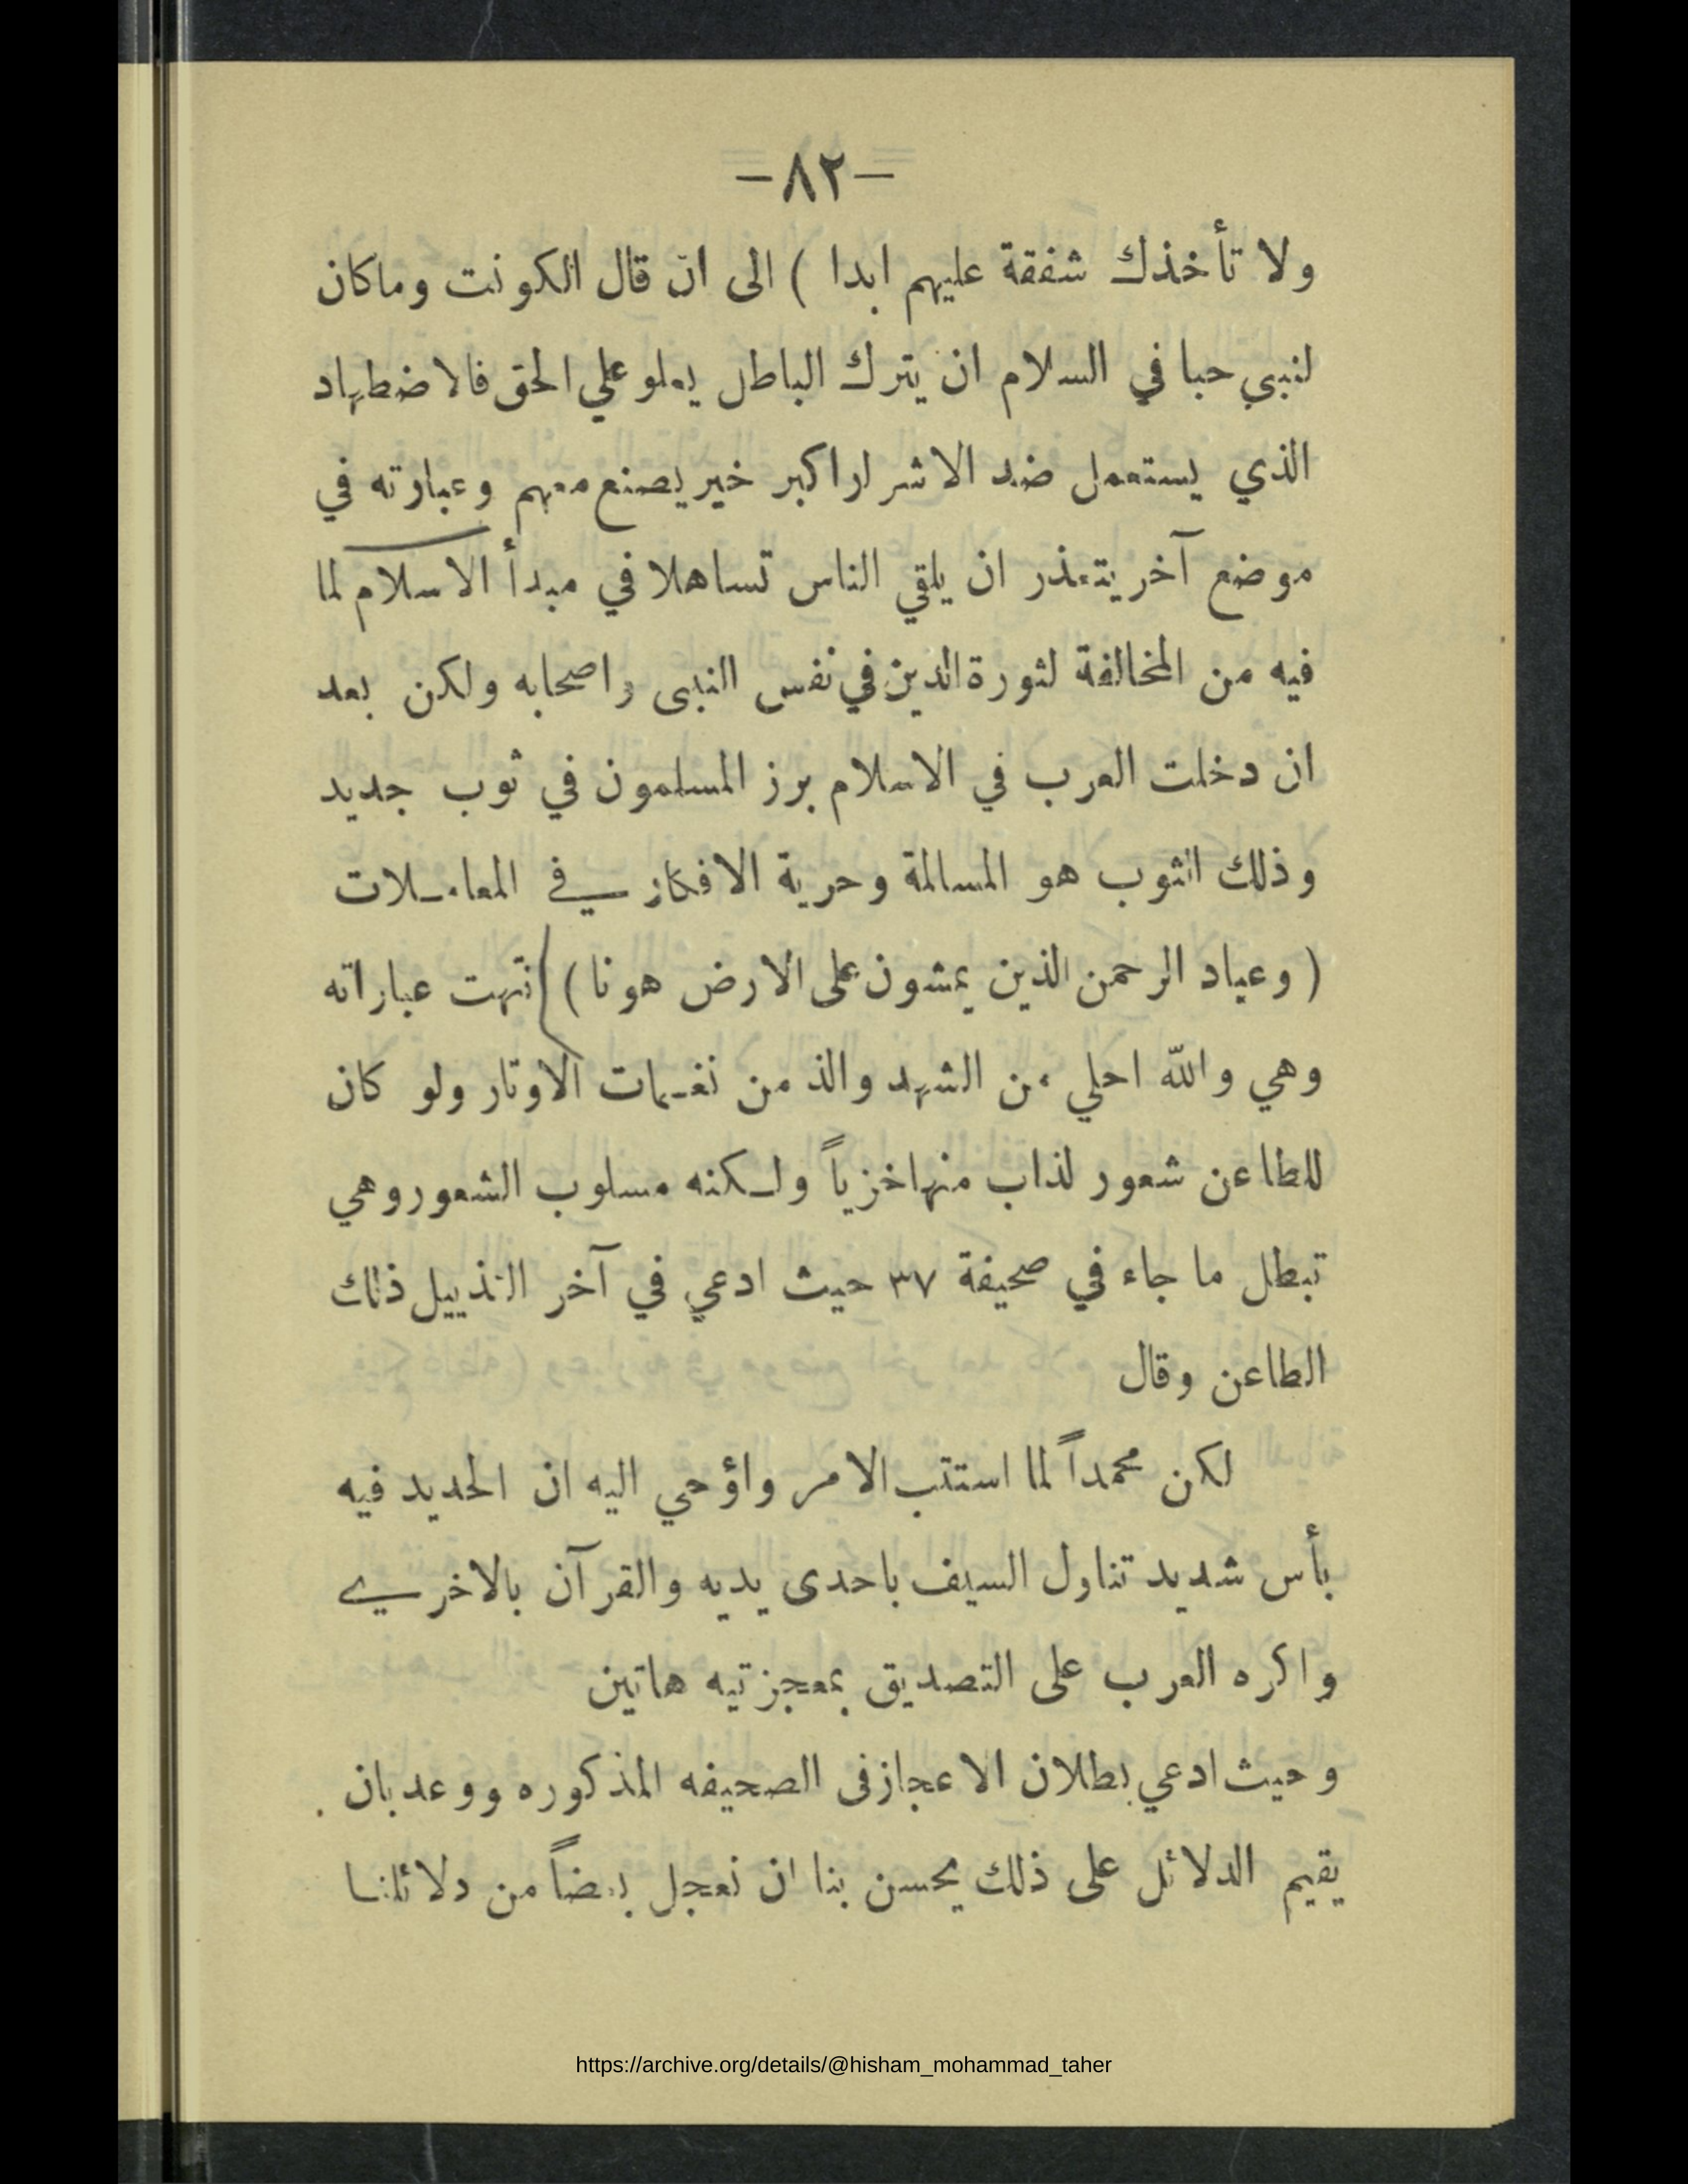 -٨٢-
ولا تأخذك شفقة عليهم ابدا ) الى ان قال الكونت وماكان
لنبي حبا في السلام ان يترك الباطل يعلو علي الحق فالاضطهاد
الذي يستعمل ضد الاشرار اكبر خير يصنع معهم وعبارته في
موضع آخر يتعذر ان يلقي الناس تساهلا في مبدأ الاسلام لما
فيه من المخالفة لثورة الدين في نفس النبى واصحابه ولكن بعد
ان دخلت العرب في الاسلام برز المسلمون في ثوب جديد
وذلك الثوب هو المسالمة وحرية الافكار في المعاملات
( وعباد الرحمن الذين يمشون على الارض هونا ) انتهت عباراته
وهي والله احلي من الشهد والذ من نغمات الاوتار ولو كان
للطاعن شعور لذاب منها خزياً ولكنه مسلوب الشعور وهي
تبطل ما جاء في صحيفة ٣٧ حيث ادعي في آخر التذييل ذلك
الطاعن وقال
لكن محمداً لما استتب الامر واؤحي اليه ان الحديد فيه
بأس شديد تناول السيف باحدى يديه والقرآن بالاخري
واكره العرب على التصديق بمعجزتيه هاتين
وحيث ادعي بطلان الاعجاز فى الصحيفه المذكوره ووعد بان
يقيم الدلائل على ذلك يحسن بنا ان نعجل بعضاً من دلائلنا
https://archive.org/details/@hisham_mohammad_taher